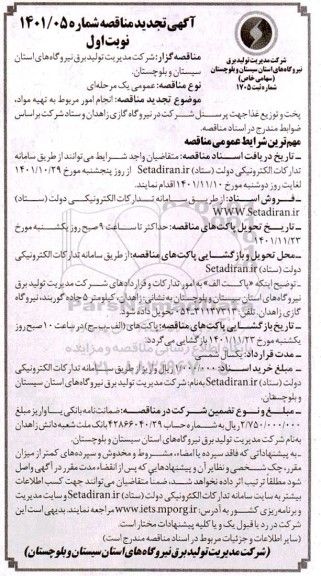 آگهی تجدید مناقصه شماره ۱۴۰۱/۰۵
نوبت اول
شرکت مدیریت تولید برق
نیروگاه‌های استان سیستان و بلوچستان
(سهامی خاص)
شماره ثبت ۱۷۰۵
مناقصه گزار: شرکت مدیریت تولید برق نیروگاه‌های استان
سیستان و بلوچستان.
نوع مناقصه: عمومی یک مرحله‌ای
موضوع تجدید مناقصه: انجام امور مربوط به تهیه مواد،
پخت و توزیع غذا جهت پرسنل شرکت در نیروگاه گازی زاهدان و ستاد شرکت بر اساس
ضوابط مندرج در اسناد مناقصه.
مهم‌ترین شرایط عمومی مناقصه
ـ تاریخ دریافت اسناد مناقصه: متقاضیان واجد شرایط می‌توانند از طریق سامانه
تدارکات الکترونیکی دولت (ستاد) Setadiran.ir از روز پنجشنبه مورخ ۱۴۰۱/۱۰/۲۹
لغایت روز دوشنبه مورخ ۱۴۰۱/۱۱/۱۰ اقدام نمایند.
ـ فروش اسناد: از طریق سامانه تدارکات الکترونیکی دولت (ستاد)
WWW.Setadiran.ir
ـ تاریخ تحویل پاکت‌های مناقصه: حداکثر تا ساعت ۹ صبح روز یکشنبه مورخ
۱۴۰۱/۱۱/۲۳
ـ محل تحویل و بازگشایی پاکت‌های مناقصه: از طریق سامانه تدارکات الکترونیکی
دولت (ستاد) Setadiran.ir
ـ توضیح اینکه «پاکت الف» به امور تدارکات و قراردادهای شرکت مدیریت تولید برق
نیروگاه‌های استان سیستان و بلوچستان به نشانی: زاهدان، کیلومتر ۵ جاده گوربند، نیروگاه
گازی زاهدان. تلفن: ۰۵۴-۳۱۱۳۷۳۱۳ تحویل داده شود.
ـ تاریخ بازگشایی پاکت‌های مناقصه: پاکت‌های (الف ـ ب ـ ج) در ساعت ۱۰ صبح روز
یکشنبه مورخ ۱۴۰۱/۱۱/۲۳ بازگشایی می‌گردد.
ـ مدت قرارداد: یکسال شمسی
ـ مبلغ خرید اسناد: ۱/۰۰۰/۰۰۰ ریال واریز از طریق سامانه تدارکات الکترونیکی
دولت (ستاد) Setadiran.ir به‌نام: شرکت مدیریت تولید برق نیروگاه‌های استان سیستان
و بلوچستان.
ـ مبلغ و نوع تضمین شرکت در مناقصه: ضمانت‌نامه بانکی یا واریز مبلغ
۲/۷۵۰/۰۰۰/۰۰۰ ریال به شماره حساب ۴۲۸۶۶۰۴۰/۳۹ بانک ملت شعبه دانش زاهدان
به‌نام شرکت مدیریت تولید برق نیروگاه‌های استان سیستان و بلوچستان.
ـ به پیشنهاداتی که فاقد سپرده یا امضاء، مشروط و مخدوش و سپرده‌های کمتر از میزان
مقرر، چک شخصی و نظایر آن و پیشنهادهایی که پس از انقضاء مدت مقرر در آگهی واصل
شود مطلقا ترتیب اثر داده نخواهد شد، ضمنا متقاضیان می‌توانند جهت کسب اطلاعات
بیشتر به سایت سامانه تدارکات الکترونیکی دولت (ستاد) Setadiran.ir و سایت مدیریت
و برنامه‌ریزی کشور به آدرس: www.iets.mporg.ir مراجعه نمایند. بدیهی است این
شرکت در رد یا قبول یک و یا کلیه پیشنهادات مختار است.
(سایر اطلاعات و جزئیات مربوط در اسناد مناقصه مندرج است)
(شرکت مدیریت تولید برق نیروگاه‌های استان سیستان و بلوچستان)